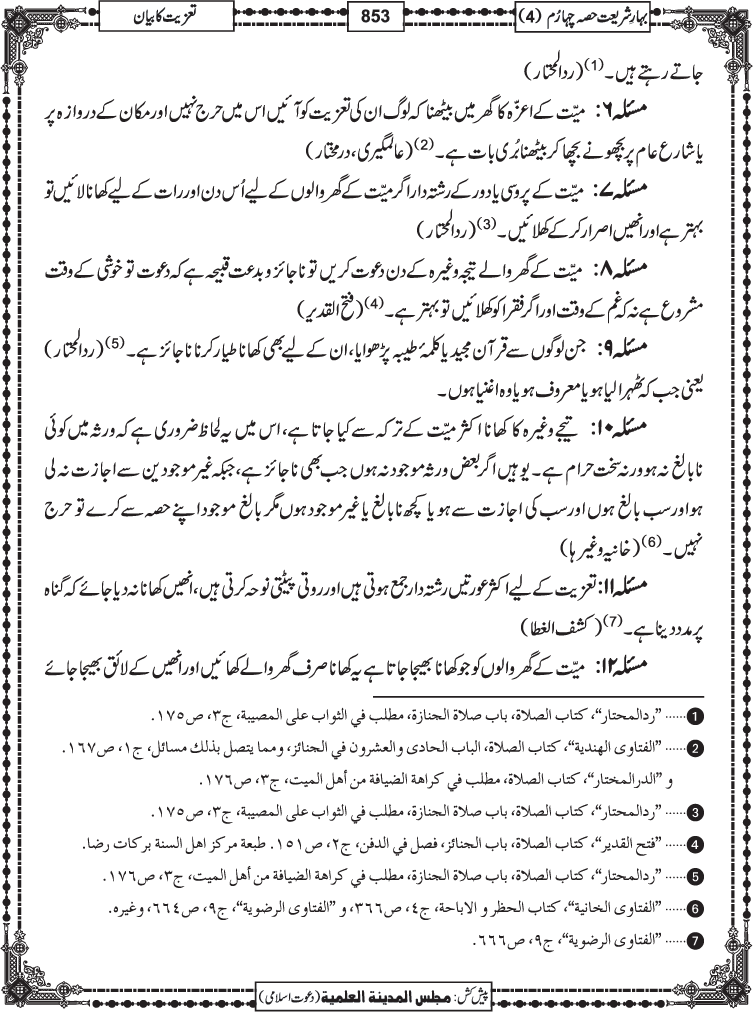 بہارِ شریعت حصہ چہارم (4)
853
تعزیت کا بیان
جاتے رہتے ہیں۔(1) (ردالمحتار)
مسئلہ ۶: میّت کے اعزّہ کا گھر میں بیٹھنا کہ لوگ ان کی تعزیت کو آئیں اس میں حرج نہیں اور مکان کے دروازہ پر
یا شارع عام پر بچھونے بچھا کر بیٹھنا بُری بات ہے۔(2) (عالمگیری، درمختار)
مسئلہ ۷: میّت کے پروسی یا دور کے رشتہ دار اگر میّت کے گھر والوں کے لیے اُس دن اور رات کے لیے کھانا لائیں تو
بہتر ہے اور انھیں اصرار کرکے کھلائیں۔(3) (ردالمحتار)
مسئلہ ۸: میّت کے گھر والے تیجہ وغیرہ کے دن دعوت کریں تو ناجائز و بدعت قبیحہ ہے کہ دعوت تو خوشی کے وقت
مشروع ہے نہ کہ غم کے وقت اور اگر فقرا کو کھلائیں تو بہتر ہے۔(4) (فتح القدیر)
مسئلہ ۹: جن لوگوں سے قرآن مجید یا کلمۂ طیبہ پڑھوایا، ان کے لیے بھی کھانا طیار کرنا ناجائز ہے۔(5) (ردالمحتار)
یعنی جب کہ ٹھہرا لیا ہو یا معروف ہو یا وہ اغنیا ہوں۔
مسئلہ ۱۰: تیجے وغیرہ کا کھانا اکثر میّت کے ترکہ سے کیا جاتا ہے، اس میں یہ لحاظ ضروری ہے کہ ورثہ میں کوئی
نابالغ نہ ہو ورنہ سخت حرام ہے۔ یوہیں اگر بعض ورثہ موجود نہ ہوں جب بھی ناجائز ہے، جبکہ غیر موجودین سے اجازت نہ لی
ہو اور سب بالغ ہوں اور سب کی اجازت سے ہو یا کچھ نابالغ یا غیر موجود ہوں مگر بالغ موجود اپنے حصہ سے کرے تو حرج
نہیں۔(6) (خانیہ وغیرہا)
مسئلہ ۱۱: تعزیت کے لیے اکثر عورتیں رشتہ دار جمع ہوتی ہیں اور روتی پیٹتی نوحہ کرتی ہیں، انھیں کھانا نہ دیا جائے کہ گناہ
پر مدد دینا ہے۔(7) (کشف الغطا)
مسئلہ ۱۲: میّت کے گھر والوں کو جو کھانا بھیجا جاتا ہے یہ کھانا صرف گھر والے کھائیں اور انھیں کے لائق بھیجا جائے
1 ...... "ردالمحتار"، کتاب الصلاة، باب صلاة الجنازة، مطلب في الثواب على المصيبة، ج۳، ص۱۷۵.
2 ...... "الفتاوى الهندية"، کتاب الصلاة، الباب الحادى والعشرون في الجنائز، ومما يتصل بذلك مسائل، ج۱، ص۱۶۷.
و "الدرالمختار"، کتاب الصلاة، مطلب في كراهة الضيافة من أهل الميت، ج۳، ص۱۷۶.
3 ...... "ردالمحتار"، کتاب الصلاة، باب صلاة الجنازة، مطلب في الثواب على المصيبة، ج۳، ص۱۷۵.
4 ...... "فتح القدير"، کتاب الصلاة، باب الجنائز، فصل في الدفن، ج۲، ص۱۵۱. طبعة مركز اهل السنة بركات رضا.
5 ...... "ردالمحتار"، کتاب الصلاة، باب صلاة الجنازة، مطلب في كراهة الضيافة من أهل الميت، ج۳، ص۱۷۶.
6 ...... "الفتاوى الخانية"، کتاب الحظر و الاباحة، ج٤، ص۳۶۶، و "الفتاوى الرضوية"، ج۹، ص۶۶٤، وغيره.
7 ...... "الفتاوى الرضوية"، ج۹، ص۶۶۶.
پیش کش: مجلس المدینة العلمیة (دعوت اسلامی)